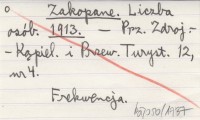 Zakopane. Liczba
osób. 1913. — Prz. Zdroj.-
- Kąpiel. i Przew. Turyst. 12,
nr 4.
Frekwencja.
/1937